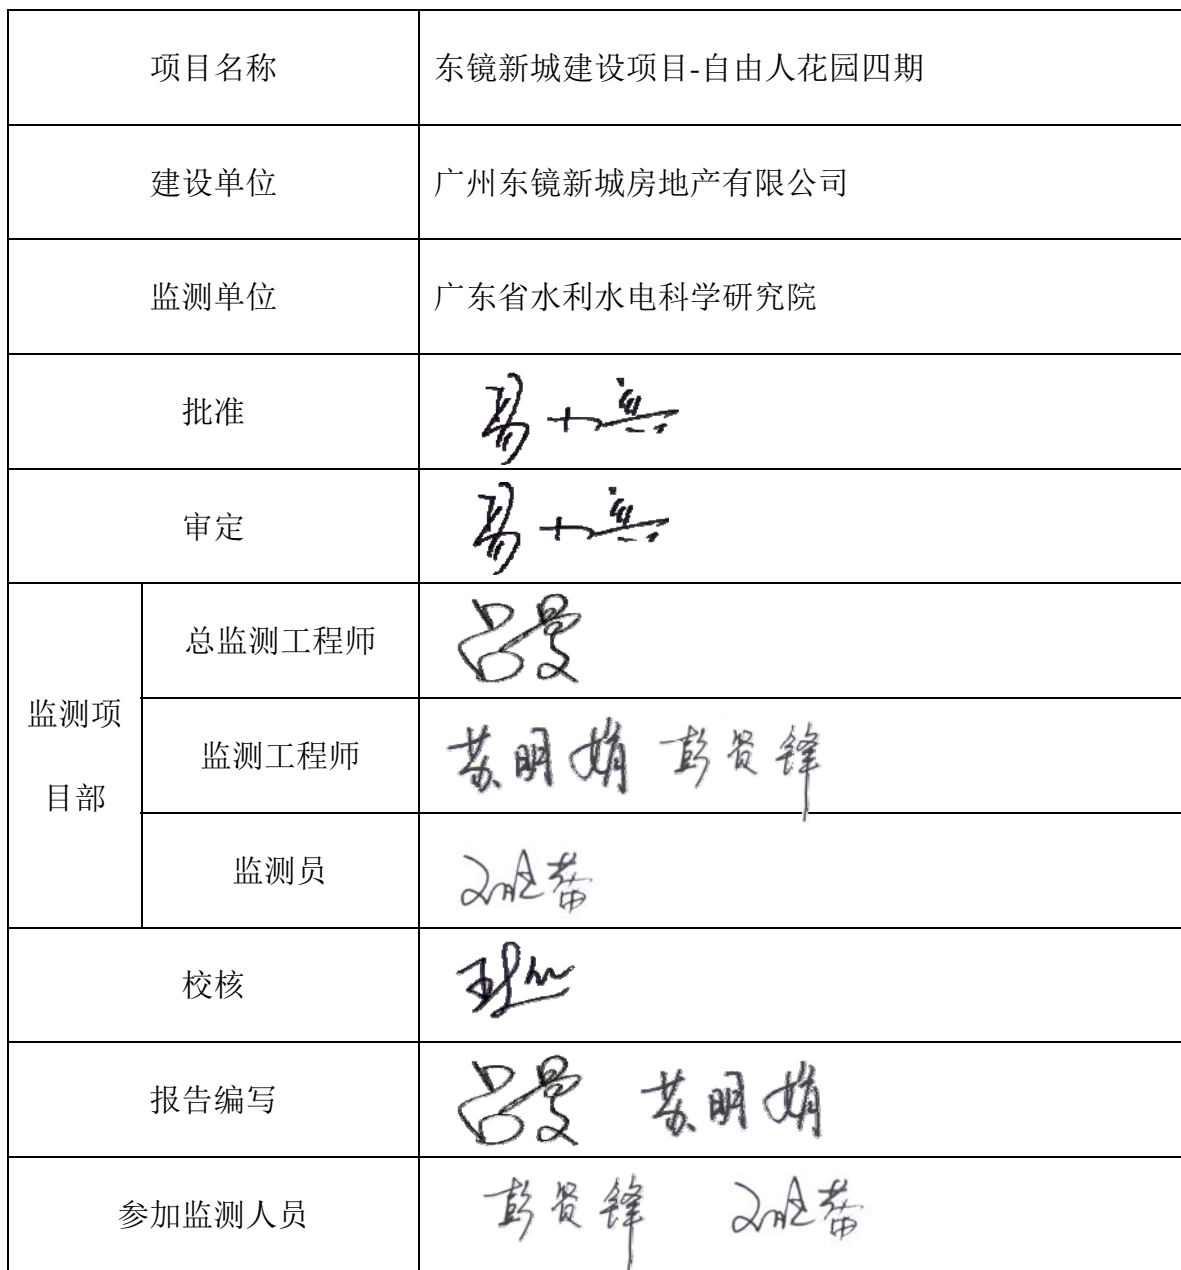 项目名称 东镜新城建设项目-自由人花园四期
建设单位 广州东镜新城房地产有限公司
监测单位 广东省水利水电科学研究院
批准
审定
监测项
目部
总监测工程师 吕曼
监测工程师 苏明娟 彭贤锋
监测员
校核
报告编写 吕曼 苏明娟
参加监测人员 彭贤锋